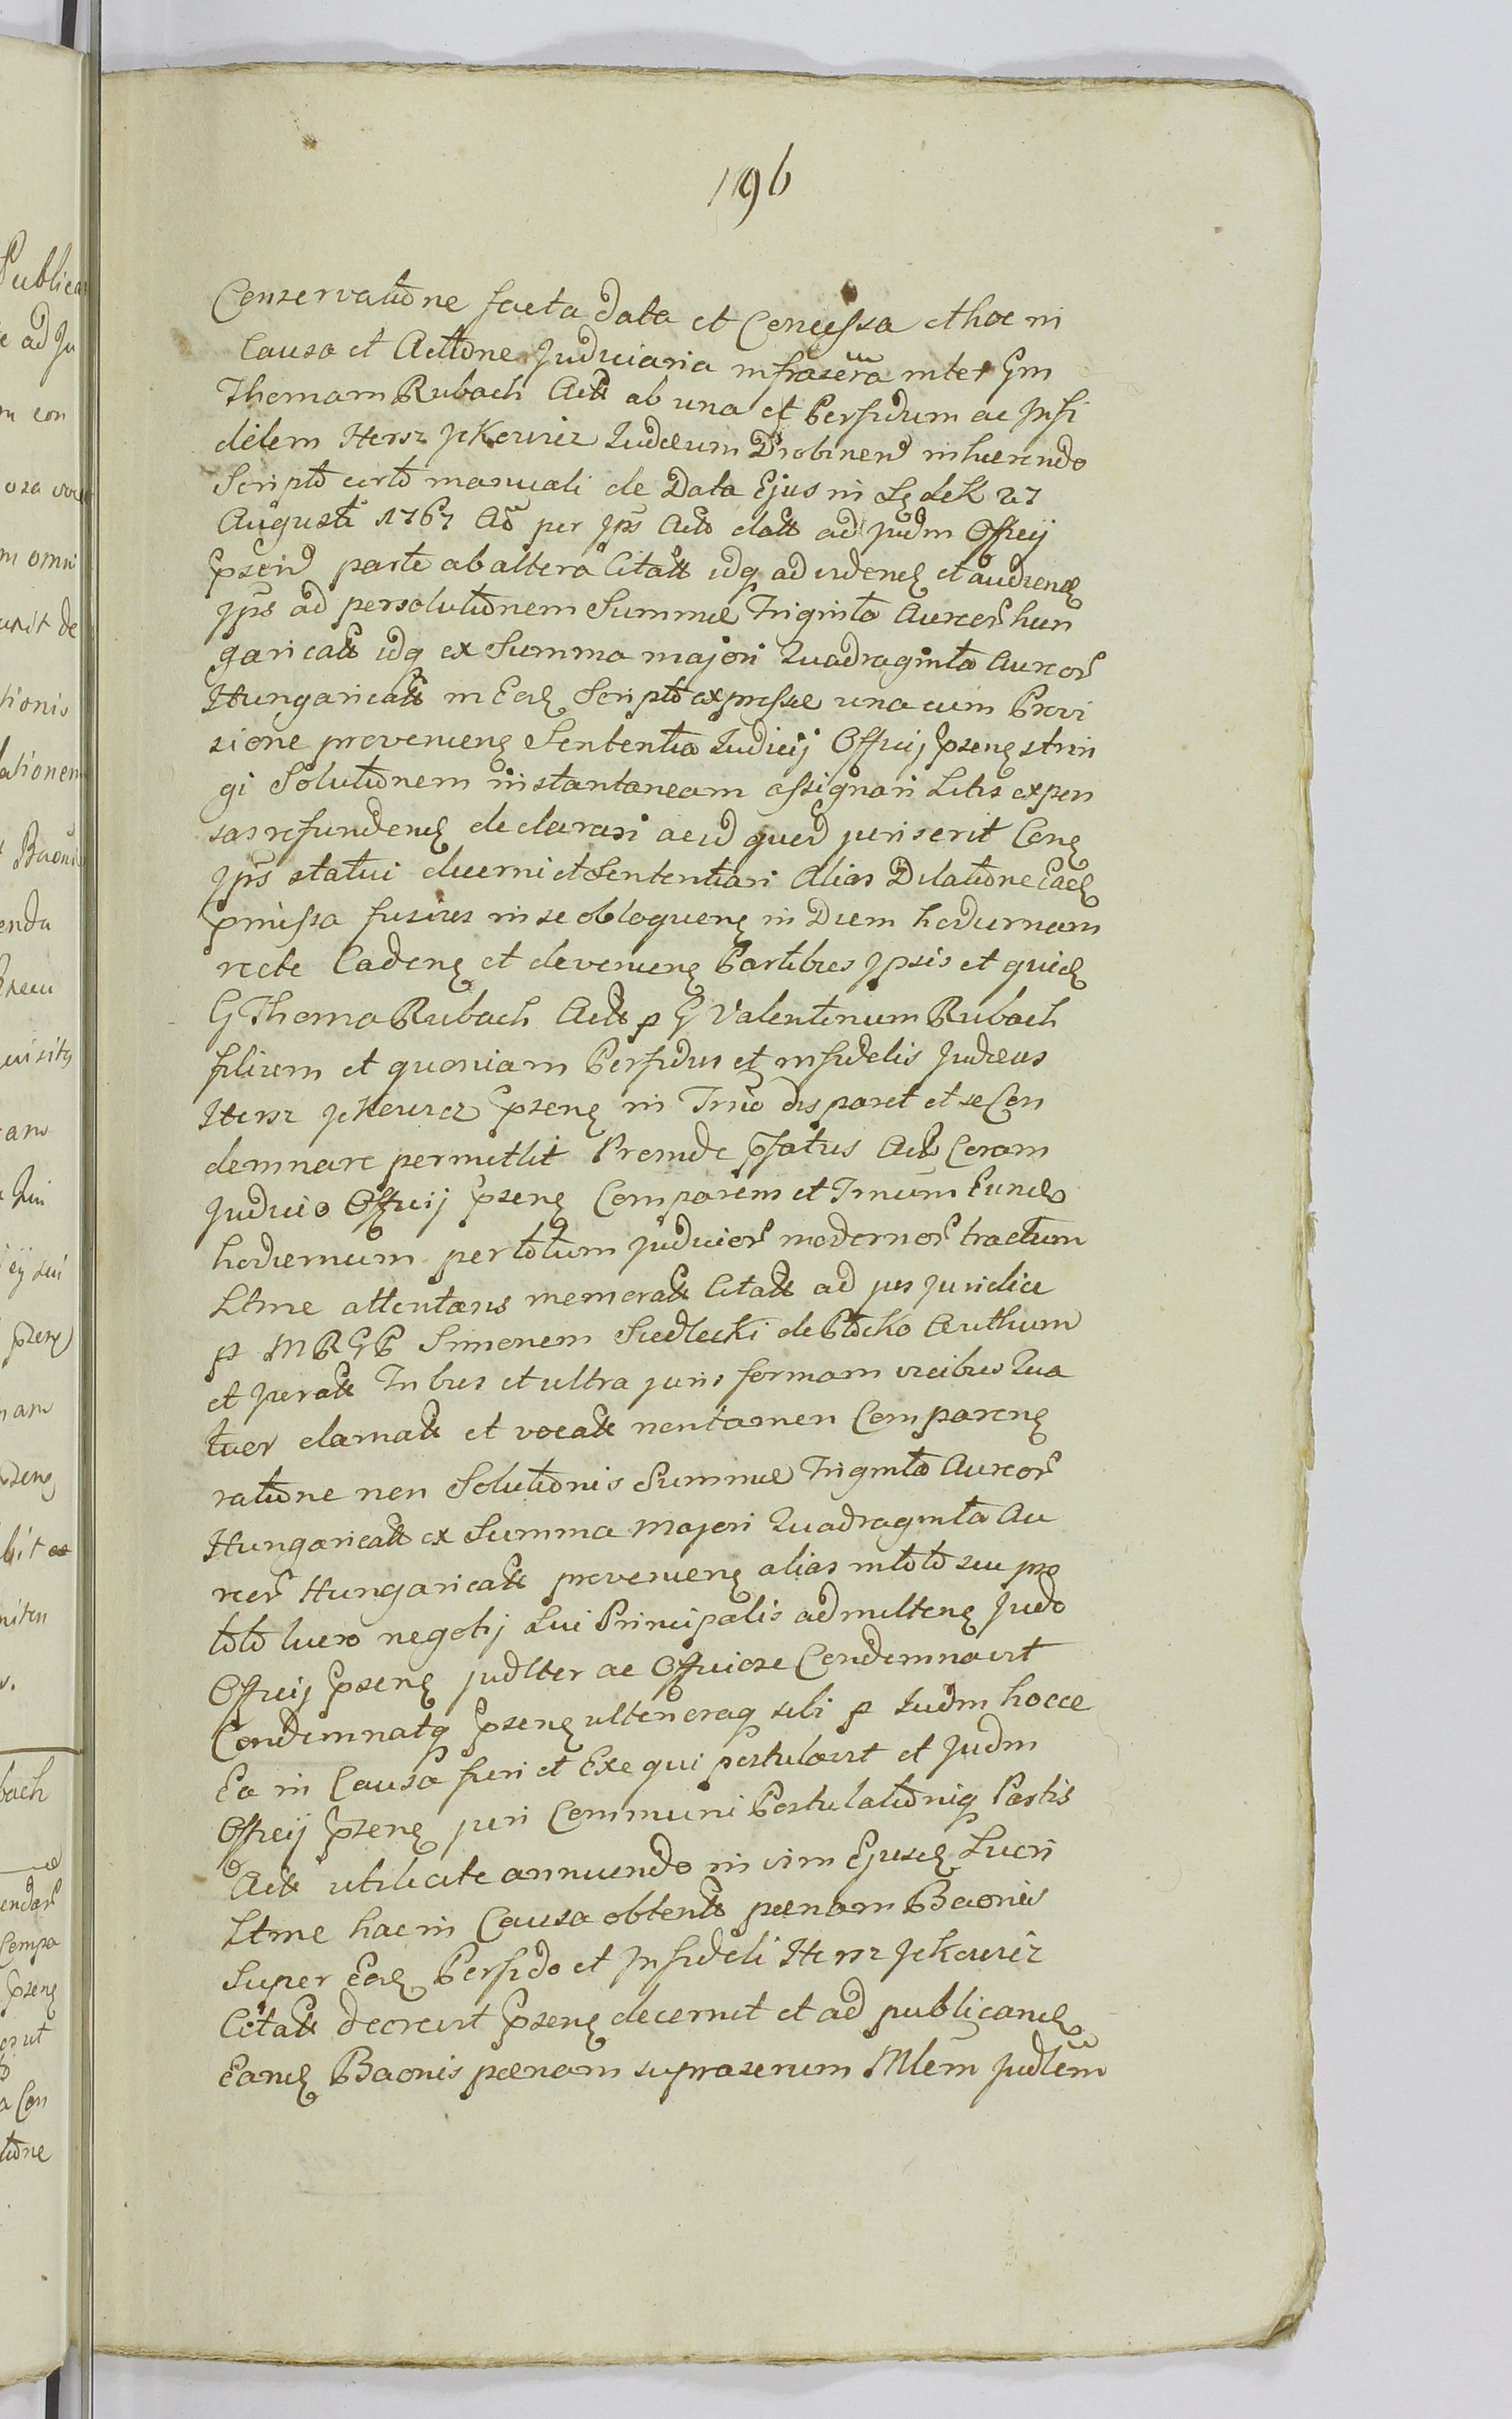 196
Conservatione facta data et Concessa et hoc in
Causa et Actione Judiciaria infrascrã inter Gm
Thomam Rubach Act ab una et Perfidum ac Infi
delem Hersz Jckowicz Judæum Drobinen inhærendo
Scripto certo manuali de Data Ejus in 27
Augusti 1767 Aõ per Jps Act dat ad Judm Officij
pzen parte ab altera Citat idq ad viden et audien
Jps ad persolutionem Summæ Triginta Aureor hun
garical idq ex Summa majori Quadraginta Aureor
Hungarical in Eod Scripto expressæ una cum Provi
sione provenien Sententia Judicij Officij pzen strin
gi Solutionem instantaneam assignari Litis expen
sas refunden declarari ac id quod juris erit Cen
Jps statui decerni et Sententiari Alias Dilatione Ead
pmissa fusius in se obloquen in Diem hodiernam
recte Caden et devenien Partibus Jpsis et quid
G Thoma Rubach Act p G Valentinum Rubach
filium et quoniam Perfidus et infidelis Judæus
Hersz Jckowicz pzen in Trno disparet et se Con
demnare permittit Proinde pfatus Act Coram
Judicio Officij pzen Comparens et Trnum Eund
hodiernum per totum judicior modernor tractum
Ltme attentans memorat Citat ad jus juridice
p M R G P Simonem Siedlecki de Plocko Authum
et Jurat Tribus et ultra juris formam vicibus Qua
tuor clamat et vocat nentamen Comparen
ratione non Solutionis Summæ Triginta Aureor
Hungarical ex Summa Majori Quadraginta Au
reor Hungarical provenien alias in toto seu pro
toto lucro negotij Sui Principalis admitten Judo
Officij pzen judlter ac Officiose Condemnavit
Condemnatq pzen ulterioraq sibi p Judm hocce
Ea in Causa fieri et Exequi postulavit et Judm
Officij pzen juri Communi Postulationiq Partis
Act utilicite annuendo in vim Ejusd Lucri
Ltme hac in Causa obtent pœnam Baonis
Super Eod Perfido et Infideli Hersz Jckowicz
Citat decrevit pzen decernit et ad publicand
Eand Baonis pœnam suprascrum Mlem Judlem